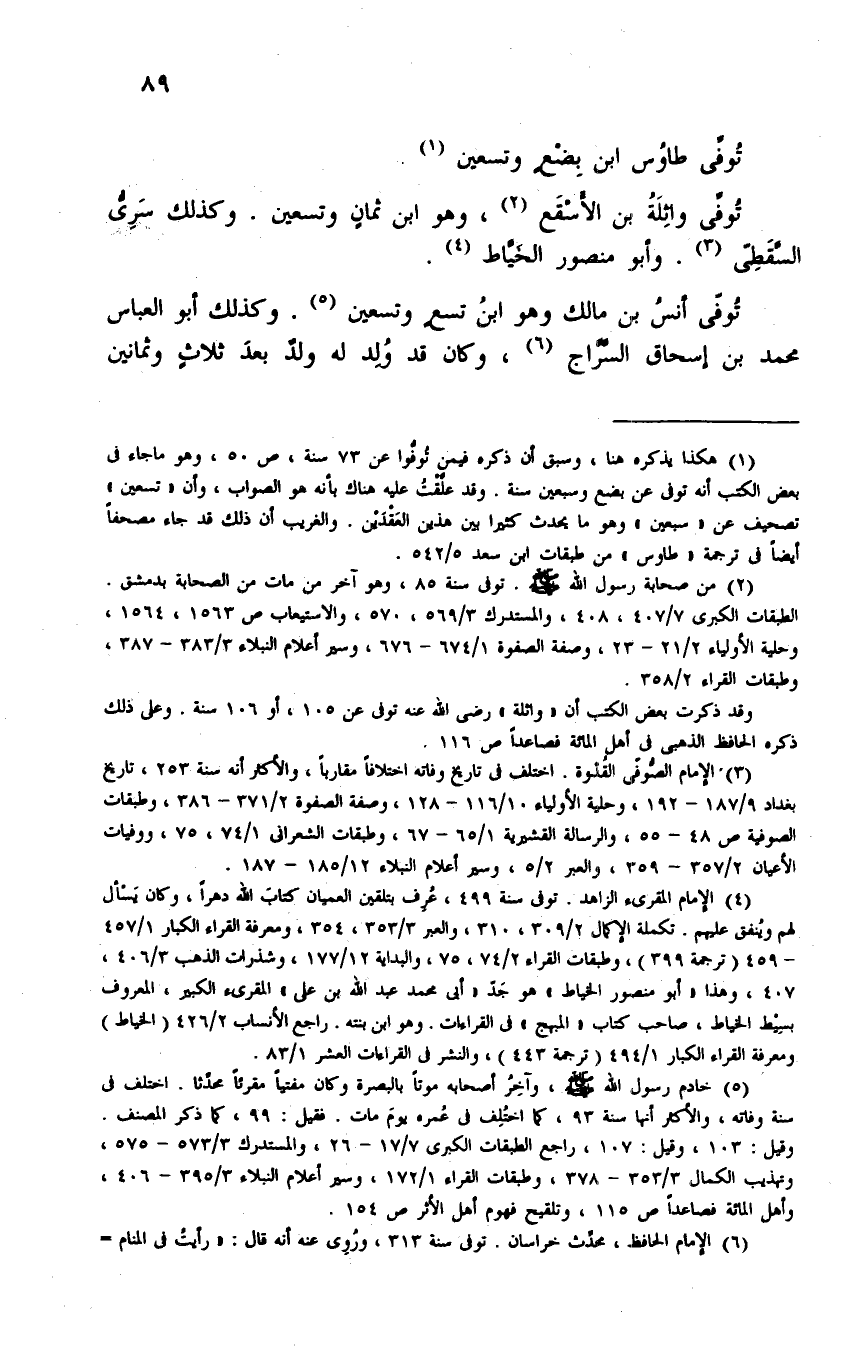 ٨٩
تُوفِّى طاوُس ابن بِضْعٍ وتسعين (١) .
تُوفِّى واثِلَةُ بن الأَسْقَع (٢) ، وهو ابن ثمانٍ وتسعين . وكذلك سَرِىُّ
السَّقَطِىّ (٣) . وأبو منصور الخَيَّاط (٤) .
تُوفِّى أنسُ بن مالك وهو ابنُ تسعٍ وتسعين (٥) . وكذلك أبو العباس
محمد بن إسحاق السَّرَّاج (٦) ، وكان قد وُلِد له ولدٌ بعدَ ثلاثٍ وثمانين
(١) هكذا يذكره هنا ، وسبق أن ذكره فيمن تُوفُّوا عن ٧٣ سنة ، ص ٥٠ ، وهو ماجاء فى
بعض الكتب أنه توفى عن بضع وسبعين سنة . وقد علَّقْتُ عليه هناك بأنه هو الصواب ، وأن « تسعين »
تصحيف عن « سبعين » وهو ما يحدث كثيرا بين هذين العَقْدَيْن . والغريب أن ذلك قد جاء مصحفاً
أيضاً فى ترجمة « طاوس » من طبقات ابن سعد ٥٤٢/٥ .
(٢) من صحابة رسول الله ﷺ . توفى سنة ٨٥ ، وهو آخر من مات من الصحابة بدمشق .
الطبقات الكبرى ٤٠٧/٧ ، ٤٠٨ ، والمستدرك ٥٦٩/٣ ، ٥٧٠ ، والاستيعاب ص ١٥٦٣ ، ١٥٦٤ ،
وحلية الأولياء ٢١/٢ – ٢٣ ، وصفة الصفوة ٦٧٤/١ – ٦٧٦ ، وسير أعلام النبلاء ٣٨٣/٣ – ٣٨٧ ،
وطبقات القراء ٣٥٨/٢ .
وقد ذكرت بعض الكتب أن « واثلة » رضى الله عنه توفى عن ١٠٥ ، أو ١٠٦ سنة . وعلى ذلك
ذكره الحافظ الذهبى فى أهل المائة فصاعداً ص ١١٦ .
(٣) الإمام الصُّوفى القُدْوة . اختلف فى تاريخ وفاته اختلافاً مقارباً ، والأكثر أنه سنة ٢٥٣ ، تاريخ
بغداد ١٨٧/٩ – ١٩٢ ، وحلية الأولياء ١١٦/١٠ – ١٢٨ ، وصفة الصفوة ٣٧١/٢ – ٣٨٦ ، وطبقات
الصوفية ص ٤٨ – ٥٥ ، والرسالة القشيرية ٦٥/١ – ٦٧ ، وطبقات الشعرانى ٧٤/١ ، ٧٥ ، ووفيات
الأعيان ٣٥٧/٢ – ٣٥٩ ، والعبر ٥/٢ ، وسير أعلام النبلاء ١٨٥/١٢ – ١٨٧ .
(٤) الإمام المقرىء الزاهد . توفى سنة ٤٩٩ ، عُرِف بتلقين العميان كتابَ الله دهراً ، وكان يَسْأل
لهم ويُنفق عليهم . تكملة الإكمال ٣٠٩/٢ ، ٣١٠ ، والعبر ٣٥٣/٣ ، ٣٥٤ ، ومعرفة القراء الكبار ٤٥٧/١
– ٤٥٩ ( ترجمة ٣٩٩ ) ، وطبقات القراء ٧٤/٢ ، ٧٥ ، والبداية ١٧٧/١٢ ، وشذرات الذهب ٤٠٦/٣ ،
٤٠٧ ، وهذا « أبو منصور الخياط » هو جَدّ « أبى محمد عبد الله بن على » المقرىء الكبير ، المعروف
بسِبْط الخياط ، صاحب كتاب « المبهج » فى القراءات . وهو ابن بنته . راجع الأنساب ٤٢٦/٢ ( الخياط )
ومعرفة القراء الكبار ٤٩٤/١ ( ترجمة ٤٤٣ ) ، والنشر فى القراءات العشر ٨٣/١ .
(٥) خادم رسول الله ﷺ ، وآخِرُ أصحابه موتاً بالبصرة وكان مفتياً مقرئاً محدِّثا . اختلف فى
سنة وفاته ، والأكثر أنها سنة ٩٣ ، كما اختُلِف فى عُمره يومَ مات . فقيل : ٩٩ ، كما ذكر المصنف .
وقيل : ١٠٣ ، وقيل : ١٠٧ ، راجع الطبقات الكبرى ١٧/٧ – ٢٦ ، والمستدرك ٥٧٣/٣ – ٥٧٥ ،
وتهذيب الكمال ٣٥٣/٣ – ٣٧٨ ، وطبقات القراء ١٧٢/١ ، وسير أعلام النبلاء ٣٩٥/٣ – ٤٠٦ ،
وأهل المائة فصاعداً ص ١١٥ ، وتلقيح فهوم أهل الأثر ص ١٥٤ .
(٦) الإمام الحافظ ، محدِّث خراسان . توفى سنة ٣١٣ ، ورُوِى عنه أنه قال : « رأيتُ فى المنام =